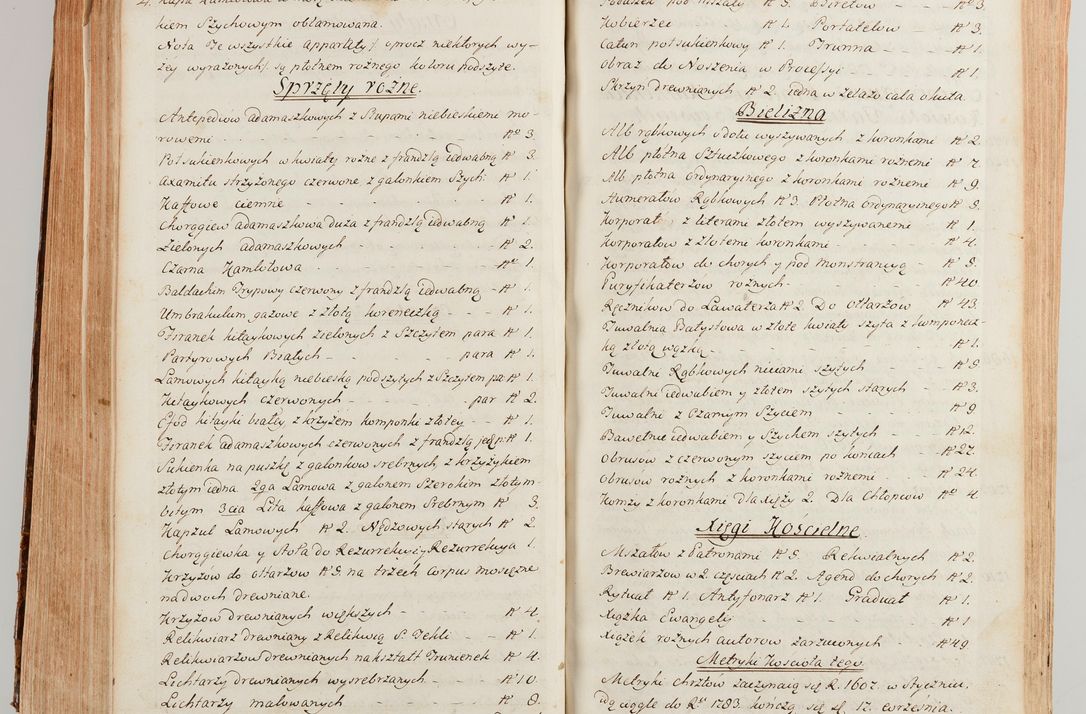 kiem Szychowym obłamowana.
Nota że wszystkie Apparaty /: oprocz niektorych wy-
żey wyrażonych :/ są płotnem rożnego koloru podszyte.
Sprzęty rożne.
Antepediow adamaszkowych z Słupami niebieskiemi mo-
rowemi - - - Nº 3.
Połsukienkowych w kwiaty rożne z frandzlą iedwabną Nº 3.
Axamitu strzyżonego czerwone z galonkiem Szych: Nº 1.
Haftowe ciemne - - - Nº 1.
Chorągiew adamaszkowa duża z frandzlą iedwabną Nº 1.
Zielonych adamaszkowych - - - Nº 2.
Czarna Hamlotowa - - - Nº 1.
Baldachim Trypowy czerwony z frandzlą iedwabną - Nº 1.
Umbrakulum gazowe z złotą koreneczką - - - Nº 1.
Firanek kitaykowych zielonych z Szczytem para Nº 1.
Partyrowych Białych - - - para Nº 1.
Lamowych kitayką niebieską podszytych z Szczytem pa Nº 1.
Kitaykowych czerwonych - - - par Nº 2.
Spód kitayki biały z krzyżem komponki złotey - - Nº 1.
Firanek adamaszkowych czerwonych z frandzlą jed p: Nº 1.
Sukienka na puszkę z galonkow srebrnych z krzyżykiem
złotym iedna 2ga Lamowa z galonem Szerokim złotym
bitym 3cia Lita haftowa z galonem Srebrnym Nº 3.
Kapzul Lamowych Nº 2. Nędzowych starych Nº 2.
Chorągiewka y Stoła do Rezurrekcyi, Rezurrekcya 1.
Krzyżow do ołtarzow Nº 5. na trzech Corpus mosiężne
na dwoch drewniane.
Krzyżow drewnianych większych - - - Nº 4.
Relikwiarz drewniany z Relikwią S. Tekli - - Nº 1.
Relikwiarzow drewnianych na kształt Trunienek Nº 4.
Lichtarzy drewnianych wysrebrzanych - - Nº 10.
Lichtarzy malowanych - - - Nº 8.
Poduszek pod mszały Nº 5. Biretow - - Nº 3.
Kobierzec Nº 1. Portatelow - - Nº 3.
Całun połsukienkowy Nº 1. Trunna - - - Nº 1.
Obraz do Noszenia w Processyi - - - Nº 1.
Skrzyn drewnianych Nº 2. iedna w żelazo cała okuta.
Bielizna
Alb rąbkowych u dołu wyszywanych z koronkami Nº 2.
Alb płotna Sztuczkowego z koronkami rożnemi Nº 7.
Alb płotna Ordynaryinego z koronkami rożnemi Nº 9.
Humerałow Rąbkowych Nº 3. Płotna Ordynaryinego Nº 8.
Korporał z literami złotem wyszywanemi Nº 1.
Korporałow z złotemi koronkami - - - Nº 4.
Korporałow do chorych y pod Monstrancyą - Nº 9.
Puryfikaterzow rożnych - - - Nº 40
Ręcznikow do Lawaterza Nº 2. Do ołtarzow Nº 43.
Tuwalnia Batystowa w złote kwiaty szyta z kompone-
ką złotą wązką - - - Nº 1.
Tuwalni Rąbkowych niciami szytych - - Nº 9
Tuwalni iedwabiem y złotem szytych starych - Nº 3.
Tuwalni z Czarnym Szyciem - - - Nº 9
Bawełnic iedwabiem y Szychem szytych - - Nº 12.
Obrusow z czerwonym szyciem po końcach - Nº 27.
Obrusow rożnych z koronkami rożnemi - - Nº 24.
Komży z koronkami dla xięży 2. Dla Chłopcow Nº 4.
Xięgi Kościelne.
Mszałow z Patronami Nº 5. Rekwialnych Nº 2.
Brewiarzow w 2. częściach Nº 2. Agend do chorych Nº 2.
Rytuał Nº 1. Antyfonarz Nº 1. Graduał Nº 1.
Xiążka Ewangelij - - - Nº 1
Xiążek rożnych autorow zarzuconych Nº 49.
Metryki Kościoła tego.
Metryki chrztow zaczynaią się R. 1607. w Styczniu,
idą ciągle do Rº 1783. kończą się d. 17. Września.